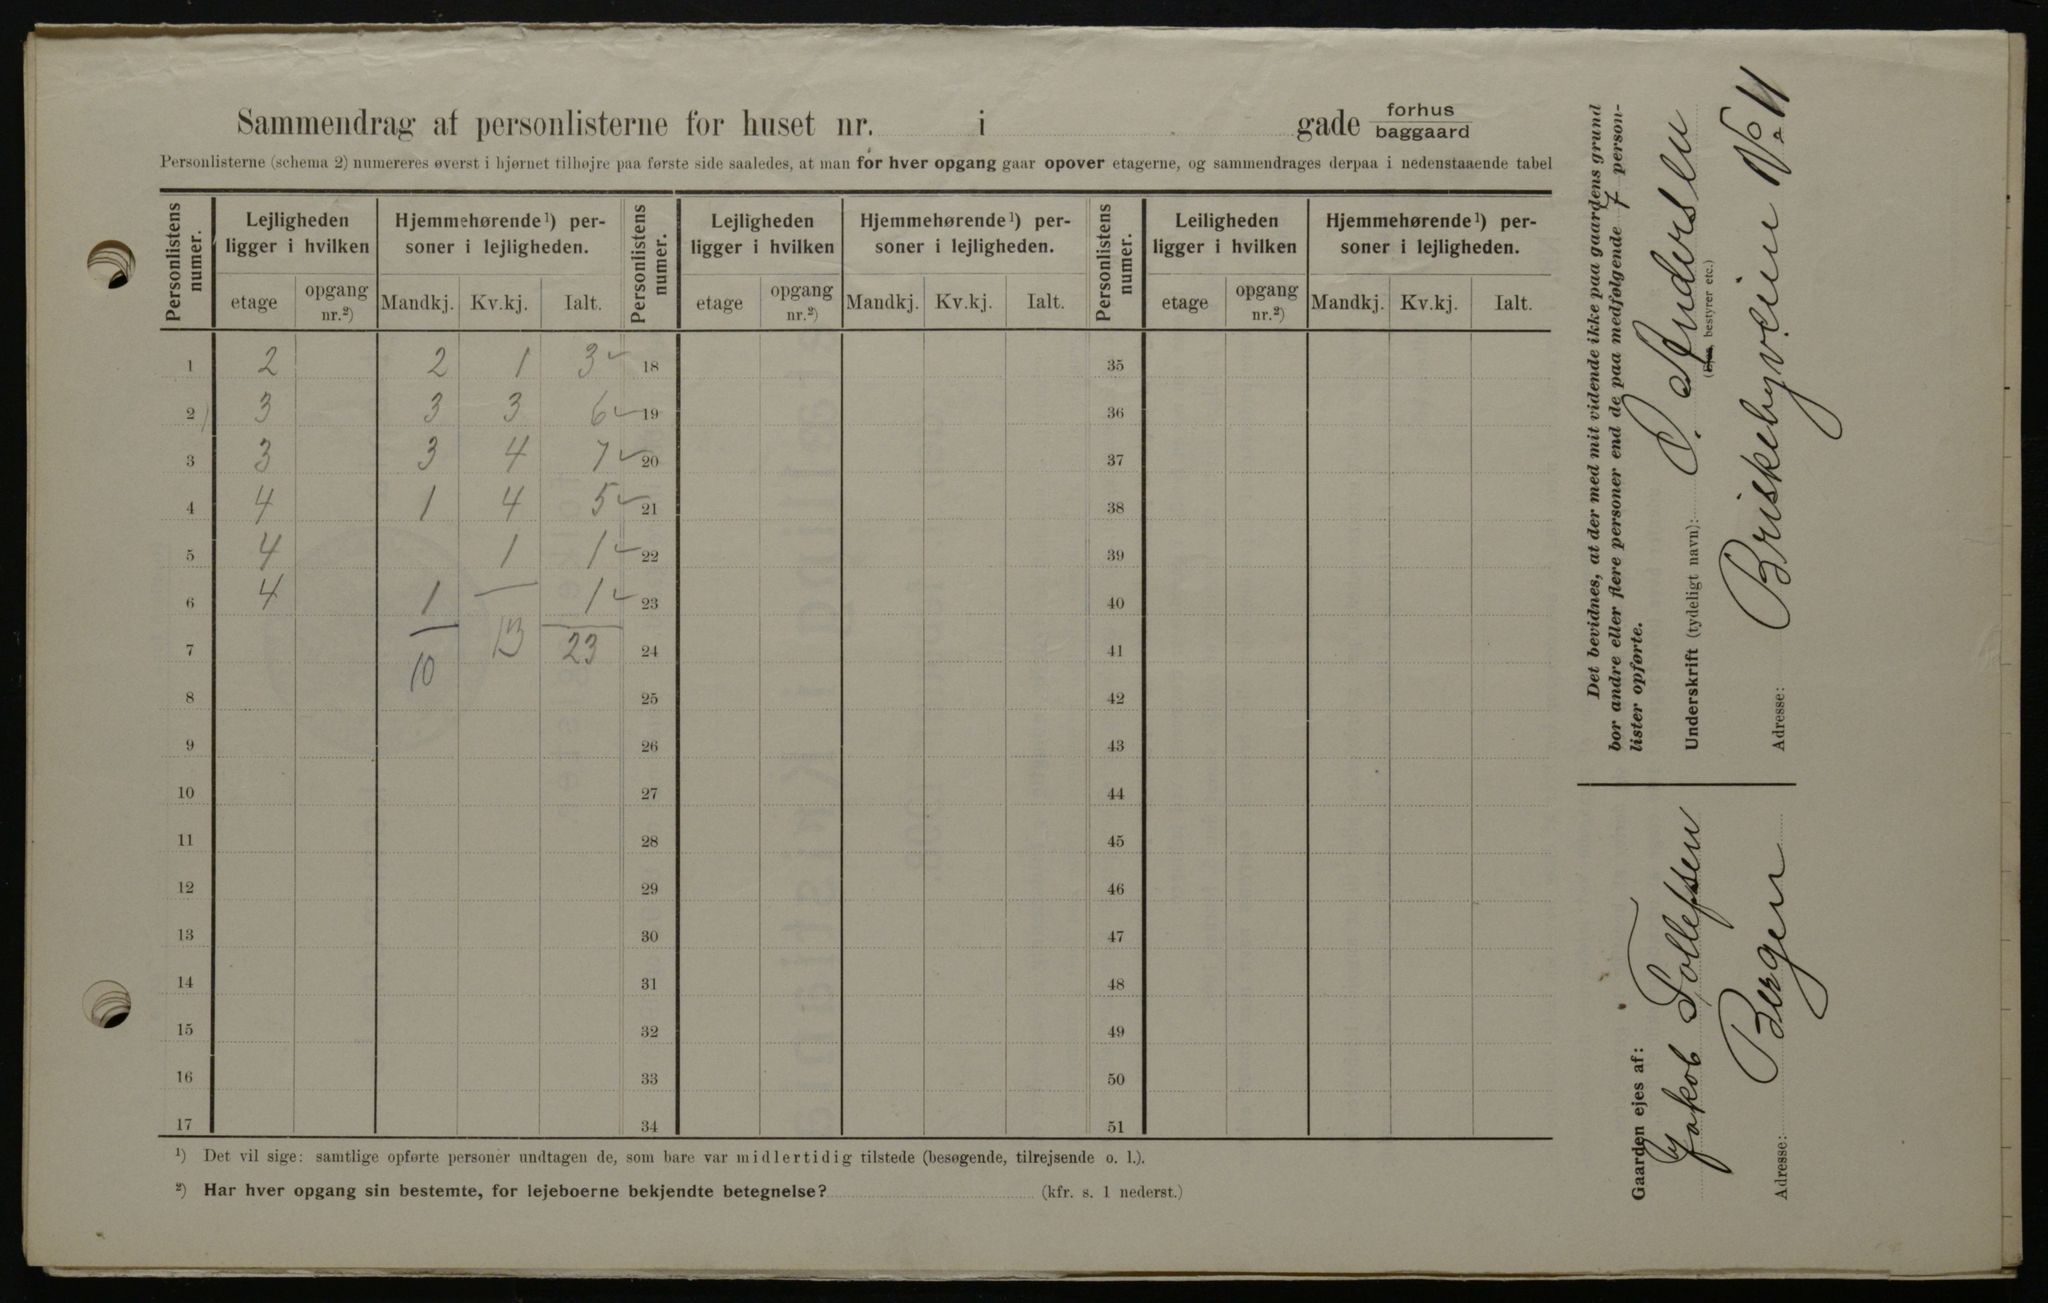 Sammendrag af personlisterne for huset nr. i gade forhus baggaard
Personlisterne (schema 2) numereres øverst i hjørnet tilhøjre paa første side saaledes, at man for hver opgang gaar opover etagerne, og sammendrages derpaa i nedenstaaende tabel
Personlistens numer. Lejligheden ligger i hvilken Hjemmehørende ¹) personer i lejligheden. Personlistens numer. Lejligheden ligger i hvilken Hjemmehørende ¹) personer i lejligheden. Personlistens numer. Leiligheden ligger i hvilken Hjemmehørende ¹) personer i lejligheden.
etage opgang nr.²) Mandkj. Kv.kj. Ialt. etage opgang nr.²) Mandkj. Kv.kj. Ialt. etage opgang nr.²) Mandkj. Kv.kj. Ialt.
1 2 2 1 3 18 35
2 3 3 3 6 19 36
3 3 3 4 7 20 37
4 4 1 4 5 21 38
5 4 1 1 22 39
6 4 1 — 1 23 40
7 10 13 23 24 41
8 25 42
9 26 43
10 27 44
11 28 45
12 29 46
13 30 47
14 31 48
15 32 49
16 33 50
17 34 51
¹) Det vil sige: samtlige opførte personer undtagen de, som bare var midlertidig tilstede (besøgende, tilrejsende o. l.).
²) Har hver opgang sin bestemte, for lejeboerne bekjendte betegnelse? (kfr. s. 1 nederst.)
Det bevidnes, at der med mit vidende ikke paa gaardens grund
bor andre eller flere personer end de paa medfølgende 7 person-
lister opførte.
Underskrift (tydeligt navn): P. Andersen
(Ejer, bestyrer etc.)
Adresse: Briskebyveien No 11
Gaarden ejes af:
Jakob Tollefsen
Adresse: Bergen